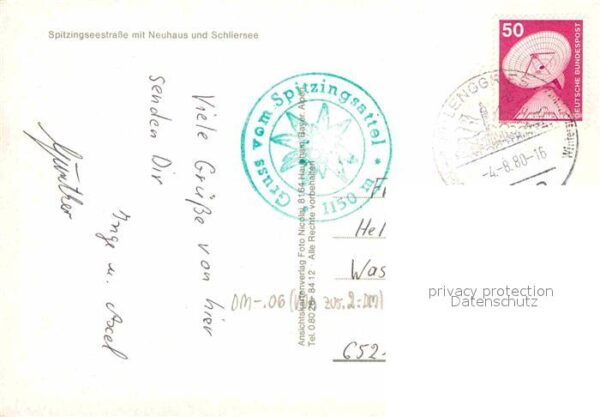 Spitzingseestraße mit Neuhaus und Schliersee
Viele Grüße von hier
senden Dir
Inge u. Axel
Günther
Gruss vom Spitzingsattel
* 1150 m *
Ansichtskartenverlag Foto Nicolai, 8164 Hausham, Bayer. Alpen
Tel. 08026 - 84 12 Alle Rechte vorbehalten
50
DEUTSCHE BUNDESPOST
LENGGRIES
-4.-8.80-16
Hel
Was
652-
DM-.06 (
zus. 2.-DM)
privacy protection
Datenschutz